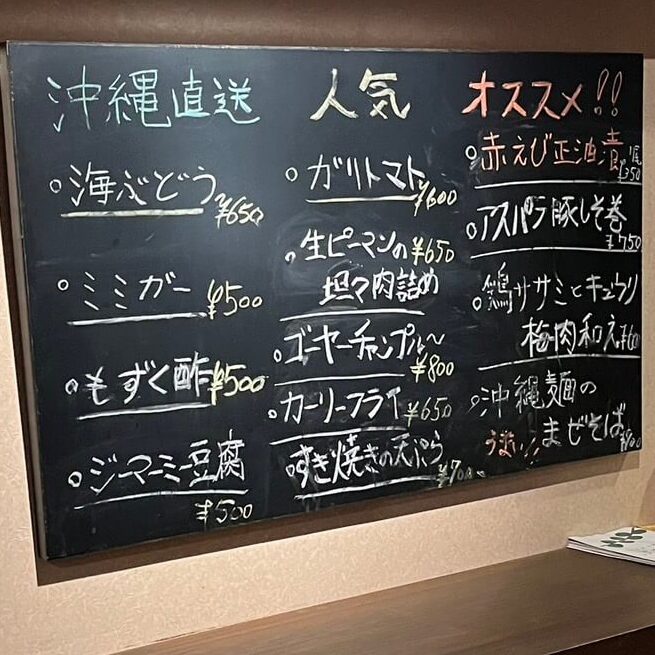 沖縄直送
海ぶどう
¥650
ミミガー ¥500
もずく酢 ¥500
ジーマーミー豆腐
¥500
人気
ガリトマト
¥600
生ピーマンの ¥650
坦々肉詰め
ゴーヤーチャンプル〜
¥800
カーリーフライ ¥650
すき焼きの天ぷら
¥700
オススメ!!
赤えび正油漬
1尾
¥350
アスパラ豚しそ巻
¥750
鶏ササミとキュウリ
梅肉和え ¥600
沖縄麺の
うまい!! まぜそば ¥900